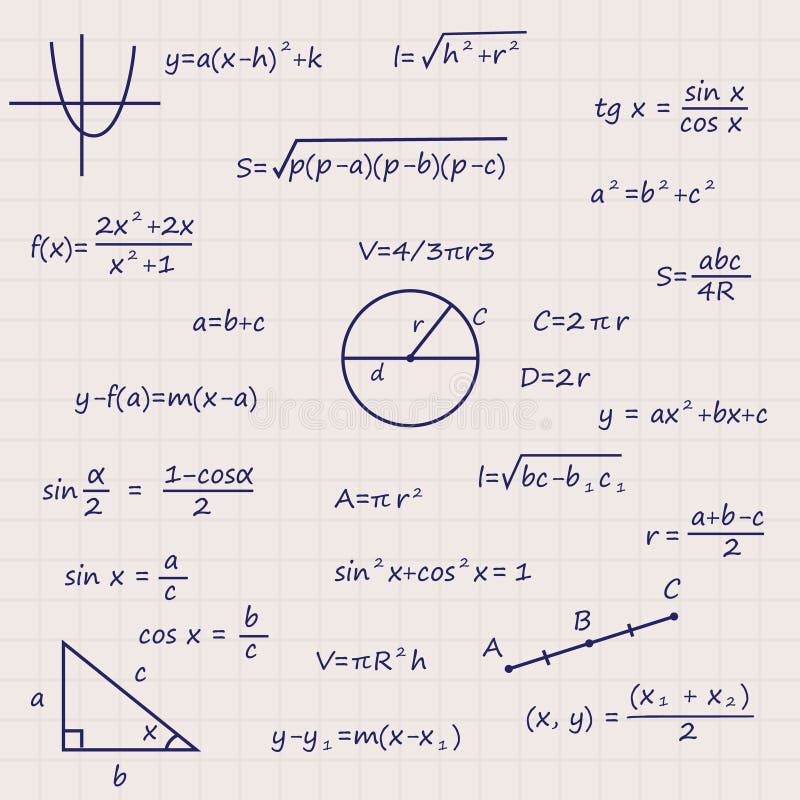 y=a(x-h)²+k
l=√h²+r²
tg x = sin x / cos x
S=√p(p-a)(p-b)(p-c)
a²=b²+c²
f(x)= 2x²+2x / x²+1
V=4/3πr3
S= abc / 4R
a=b+c
r
C
d
C=2πr
D=2r
y-f(a)=m(x-a)
dreamstime.
y = ax²+bx+c
sin α/2 = 1-cosα / 2
l=√bc-b₁c₁
A=πr²
r = a+b-c / 2
sin x = a / c
sin²x+cos²x= 1
C
B
A
cos x = b / c
V=πR²h
c
a
x
b
(x, y) = (x₁ + x₂) / 2
y-y₁=m(x-x₁)